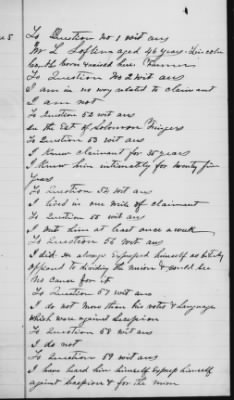 5
To Question No 1 wit ans
Mr L Loftin aged 46 years Lincoln
County born raised here Farmer
To Question No 2 wit ans
I am in no way related to claimant
I am not
To Question 52 wit ans
In the Est of Solomon Fingers
To Question 53 wit ans
I knew claimant for 35 years
I knew him intimately for twenty five
years
To Question 54 wit ans
I lived in one mile of claimant
To Question 55 wit ans
I met him at least once a week
To Question 56 wit ans
I did. He always expressed himself as bitterly
opposed to dividing the union & could see
no cause for it
To Question 57 wit ans
I do not more than his votes & language
which were against Secession
To Question 58 wit ans
I do not
To Question 59 wit ans
I have heard him himself express himself
against Secession & for the union